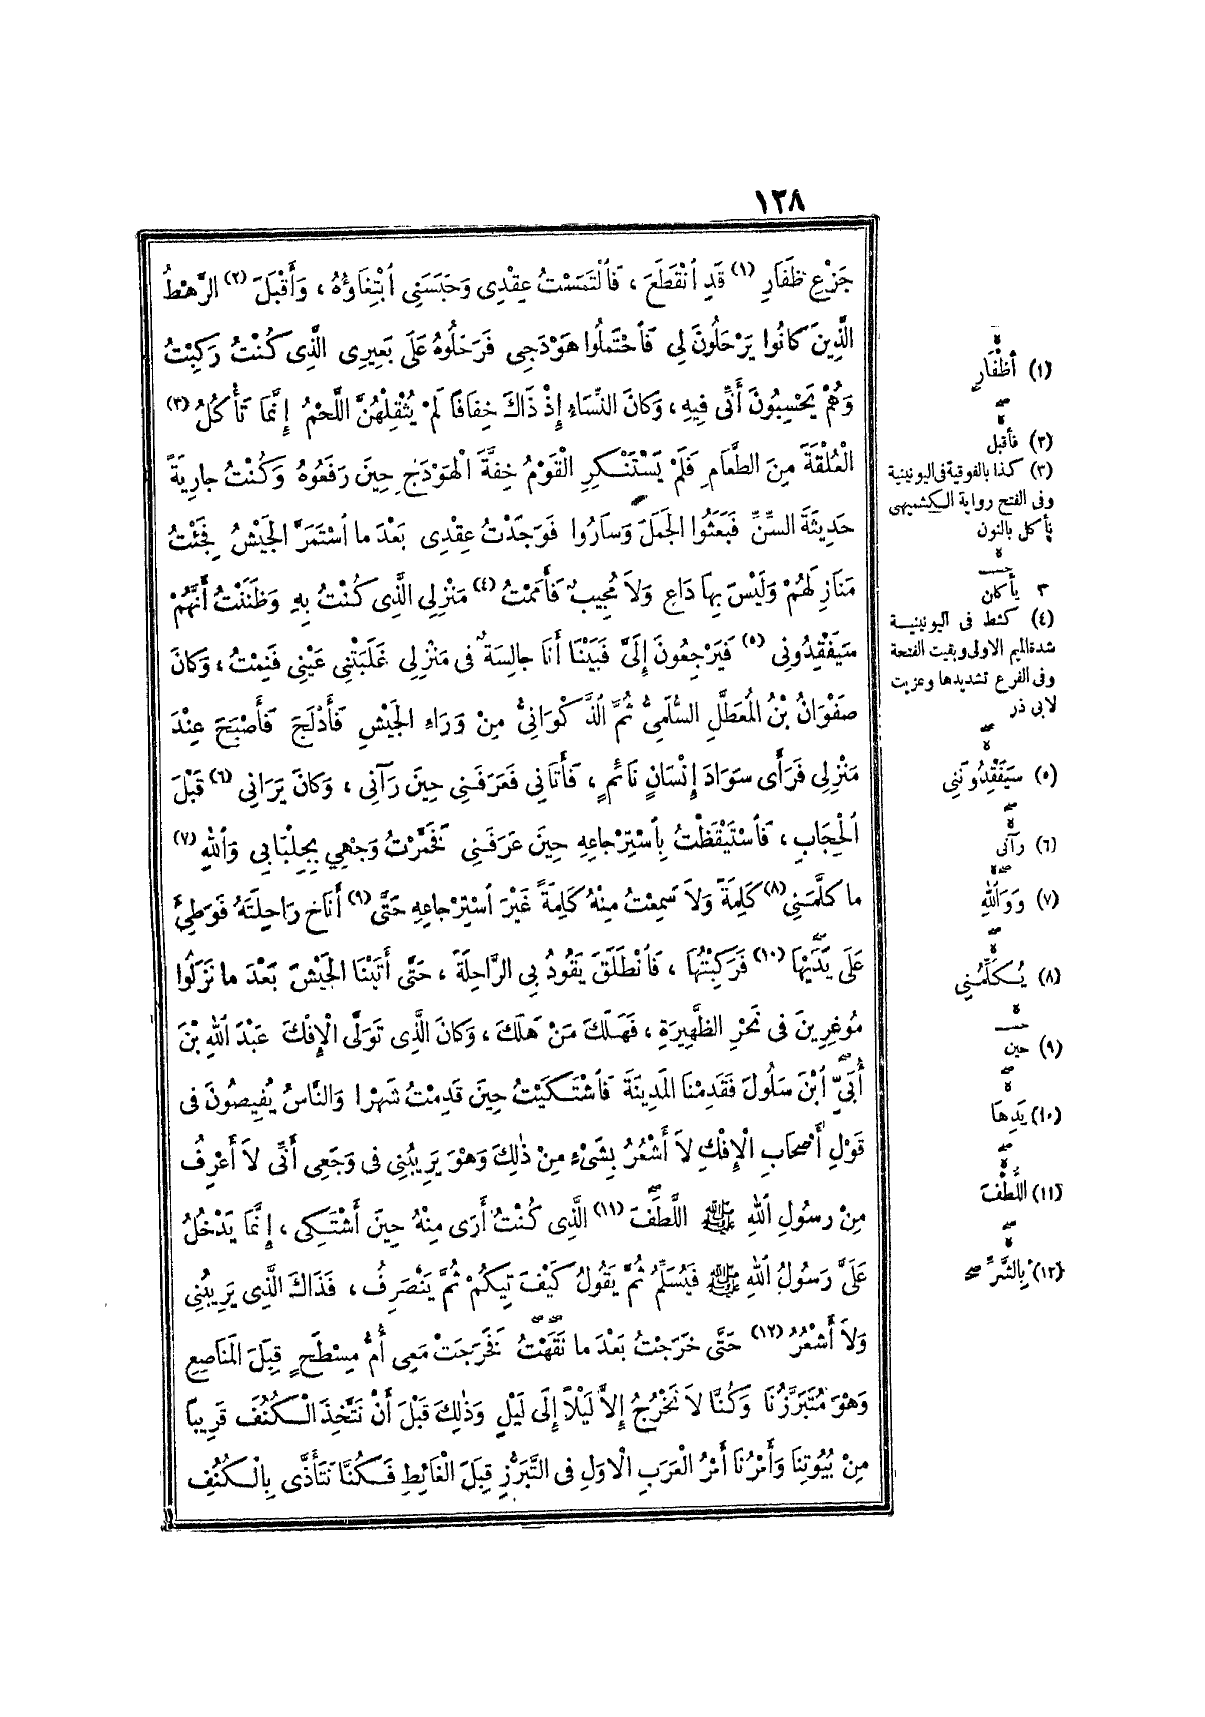 ١٢٨
جَزْعِ ظَفَارِ (١) قَدِ ٱنْقَطَعَ ، فَٱلْتَمَسْتُ عِقْدِى وَحَبَسَنِى ٱبْتِغَاؤُهُ ، وَأَقْبَلَ (٢) الرَّهْطُ
الَّذِينَ كَانُوا يَرْحَلُونَ لِى فَٱحْتَمَلُوا هَوْدَجِى فَرَحَلُوهُ عَلَى بَعِيرِى الَّذِى كُنْتُ رَكِبْتُ
وَهُمْ يَحْسِبُونَ أَنِّى فِيهِ ، وَكَانَ النِّسَاءُ إِذْ ذَاكَ خِفَافًا لَمْ يُثْقِلْهُنَّ اللَّحْمُ إِنَّمَا تَأْكُلُ (٣)
الْعُلْقَةَ مِنَ الطَّعَامِ فَلَمْ يَسْتَنْكِرِ الْقَوْمُ خِفَّةَ الْهَوْدَجِ حِينَ رَفَعُوهُ وَكُنْتُ جارِيَةً
حَدِيثَةَ السِّنِّ فَبَعَثُوا الجَمَلَ وَسَارُوا فَوَجَدْتُ عِقْدِى بَعْدَ ما ٱسْتَمَرَّ الجَيْشُ فَجِئْتُ
مَنَازِلَهُمْ وَلَيْسَ بِهَا دَاعٍ وَلاَ مُجِيبٌ فَأَمَمْتُ (٤) مَنْزِلِى الَّذِى كُنْتُ بِهِ وَظَنَنْتُ أَنَّهُمْ
سَيَفْقِدُونِى (٥) فَيَرْجِعُونَ إِلَىَّ فَبَيْنَا أَنَا جالِسَةٌ فى مَنْزِلِى غَلَبَتْنِى عَيْنِى فَنِمْتُ ، وَكَانَ
صَفْوَانُ بْنُ المُعَطَّلِ السُّلَمِىُّ ثُمَّ الذَّكْوَانِىُّ مِنْ وَرَاءِ الجَيْشِ فَأَدْلَجَ فَأَصْبَحَ عِنْدَ
مَنْزِلِى فَرَأَى سَوَادَ إِنْسَانٍ نَائِمٍ ، فَأَتَانِى فَعَرَفَنِى حِينَ رَآنِى ، وَكَانَ يَرَانِى (٦) قَبْلَ
ٱلْحِجَابِ ، فَٱسْتَيْقَظْتُ بِٱسْتِرْجاعِهِ حِينَ عَرَفَنِى فَخَمَّرْتُ وَجْهِي بِجِلْبَابِي وَٱللهِ (٧)
ما كلَّمَنِى (٨) كَلِمَةً وَلاَ سَمِعْتُ مِنْهُ كَلِمَةً غَيْرَ ٱسْتِرْجاعِهِ حَتَّى (٩) أَنَاخَ رَاحِلَتَهُ فَوَطِئَ
عَلَى يَدَيْهَا (١٠) فَرَكِبْتُهَا ، فَٱنْطَلَقَ يَقُودُ بِى الرَّاحِلَةَ ، حَتَّى أَتَيْنَا الجَيْشَ بَعْدَ ما نَزَلُوا
مُوغِرِينَ فى نَحْرِ الظَّهِيرَةِ ، فَهَلَكَ مَنْ هَلَكَ ، وَكَانَ الَّذِى تَوَلَّى الْإِفْكَ عَبْدَ ٱللهِ بْنَ
أُبَىٍّ ٱبْنَ سَلُولَ فَقَدِمْنَا المَدِينَةَ فَٱشْتَكَيْتُ حِينَ قَدِمْتُ شَهْرًا وَالنَّاسُ يُفِيضُونَ فى
قَوْلِ أَصْحَابِ الْإِفْكِ لاَ أَشْعُرُ بِشَىْءٍ مِنْ ذٰلِكَ وَهْوَ يَرِيبُنِى فى وَجَعِى أَنِّى لاَ أَعْرِفُ
مِنْ رسُولِ ٱللهِ ﷺ اللَّطَفَ (١١) الَّذِى كُنْتُ أَرَى مِنْهُ حِينَ أَشْتَكِى ، إِنَّمَا يَدْخُلُ
عَلَىَّ رَسُولُ ٱللهِ ﷺ فَيُسَلِّمُ ثُمَّ يَقُولُ كَيْفَ تِيكُمْ ثُمَّ يَنْصَرِفُ ، فَذَاكَ الَّذِى يَرِيبُنِى
وَلاَ أَشْعُرُ (١٢) حَتَّى خَرَجْتُ بَعْدَ ما نَقَهْتُ فَخَرَجَتْ مَعِى أُمُّ مِسْطَحٍ قِبَلَ المَنَاصِعِ
وَهْوَ مُتَبَرَّزُنَا وَكُنَّا لاَ نَخْرُجُ إِلاَّ لَيْلاً إِلَى لَيْلٍ وَذٰلِكَ قَبْلَ أَنْ نَتَّخِذَ الْكُنُفَ قَرِيبًا
مِنْ بُيُوتِنَا وَأَمْرُنَا أَمْرُ الْعَرَبِ الْأوَلِ فى التَّبَرُّزِ قِبَلَ الْغَائِطِ فَكُنَّا نَتَأَذَّى بِالْكُنُفِ
(١) أَظْفَارِ
(٢) فأقبل
(٣) كذا بالفوقية فى اليونينية
وفى الفتح رواية الكشميهنى
نأكل بالنون
٣ يأكلن
(٤) كشط فى اليونينية
شدة الميم الاولى وبقيت الفتحة
وفى الفرع تشديدها وعزيت
لابى ذر
(٥) سَيَفْقِدُونَنِى
(٦) رآنى
(٧) وَوَٱللهِ
(٨) يُكَلِّمُنِى
(٩) حين
(١٠) يَدِهَا
(١١) اللُّطْفَ
(١٢) بِالشَّرِّ صح